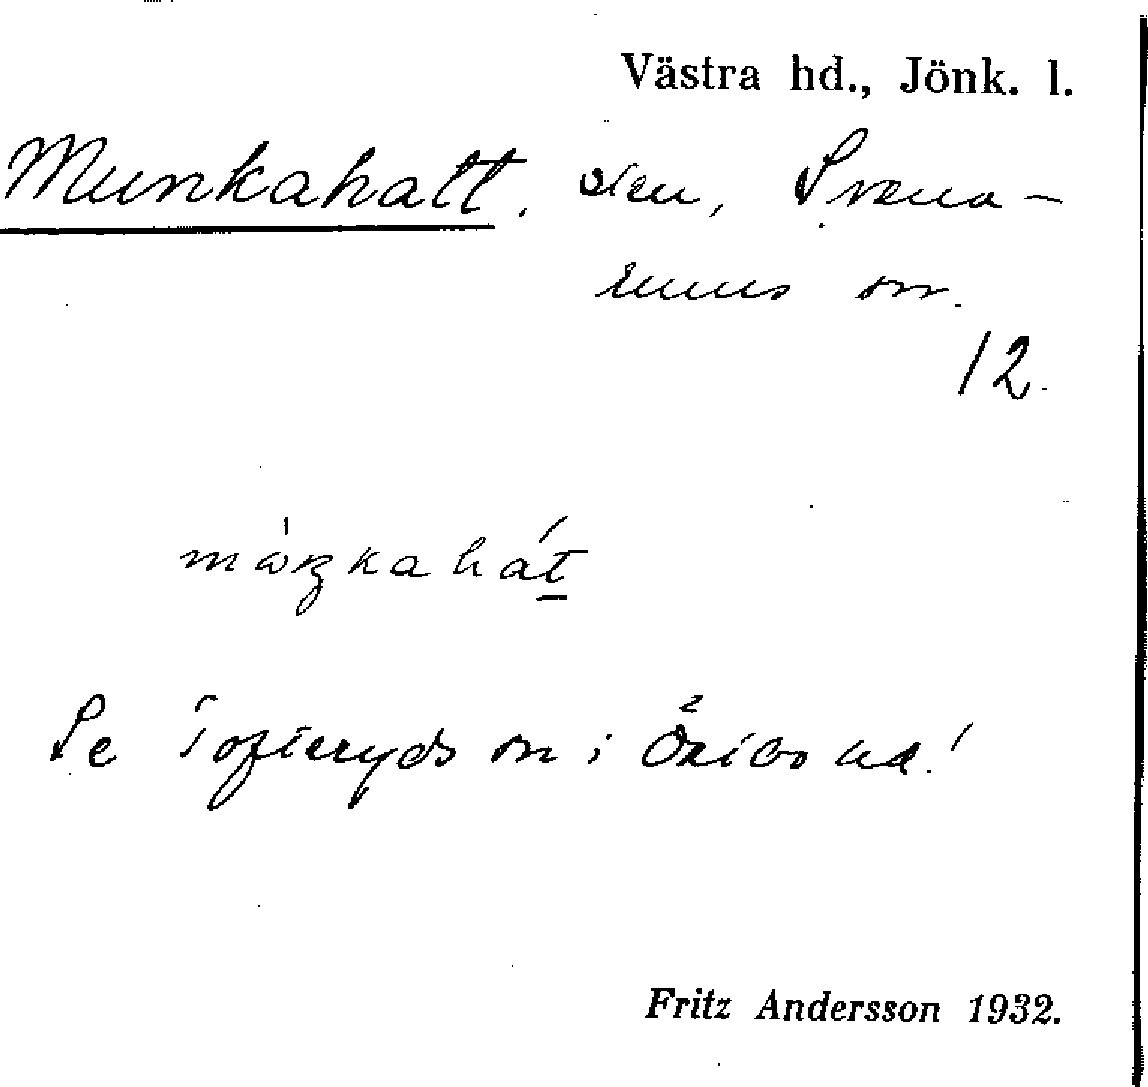 Västra hd., Jönk. l.
Munkahatt. sten, Svena-
rums sn.
12.
Se Tofteryds sn i Östbo hd!
Fritz Andersson 1932.